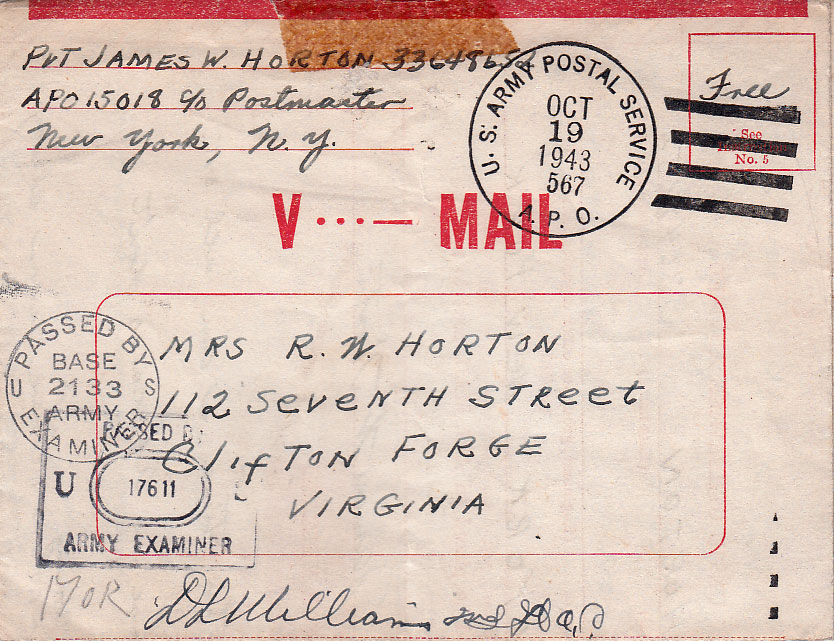 Pvt JAMES W. HORTON
APO 15018 c/o Postmaster
New York, N.Y.
U. S. ARMY POSTAL SERVICE
OCT
19
1943
567
A. P. O.
Free
See
No. 5
V ···— MAIL
PASSED BY
BASE
U 2133 S
ARMY
EXAMINER
MRS R. W. HORTON
112 SEVENTH STREET
CLifTON FORGE
VIRGINIA
PASSED BY
U 17611
ARMY EXAMINER
DL Williams